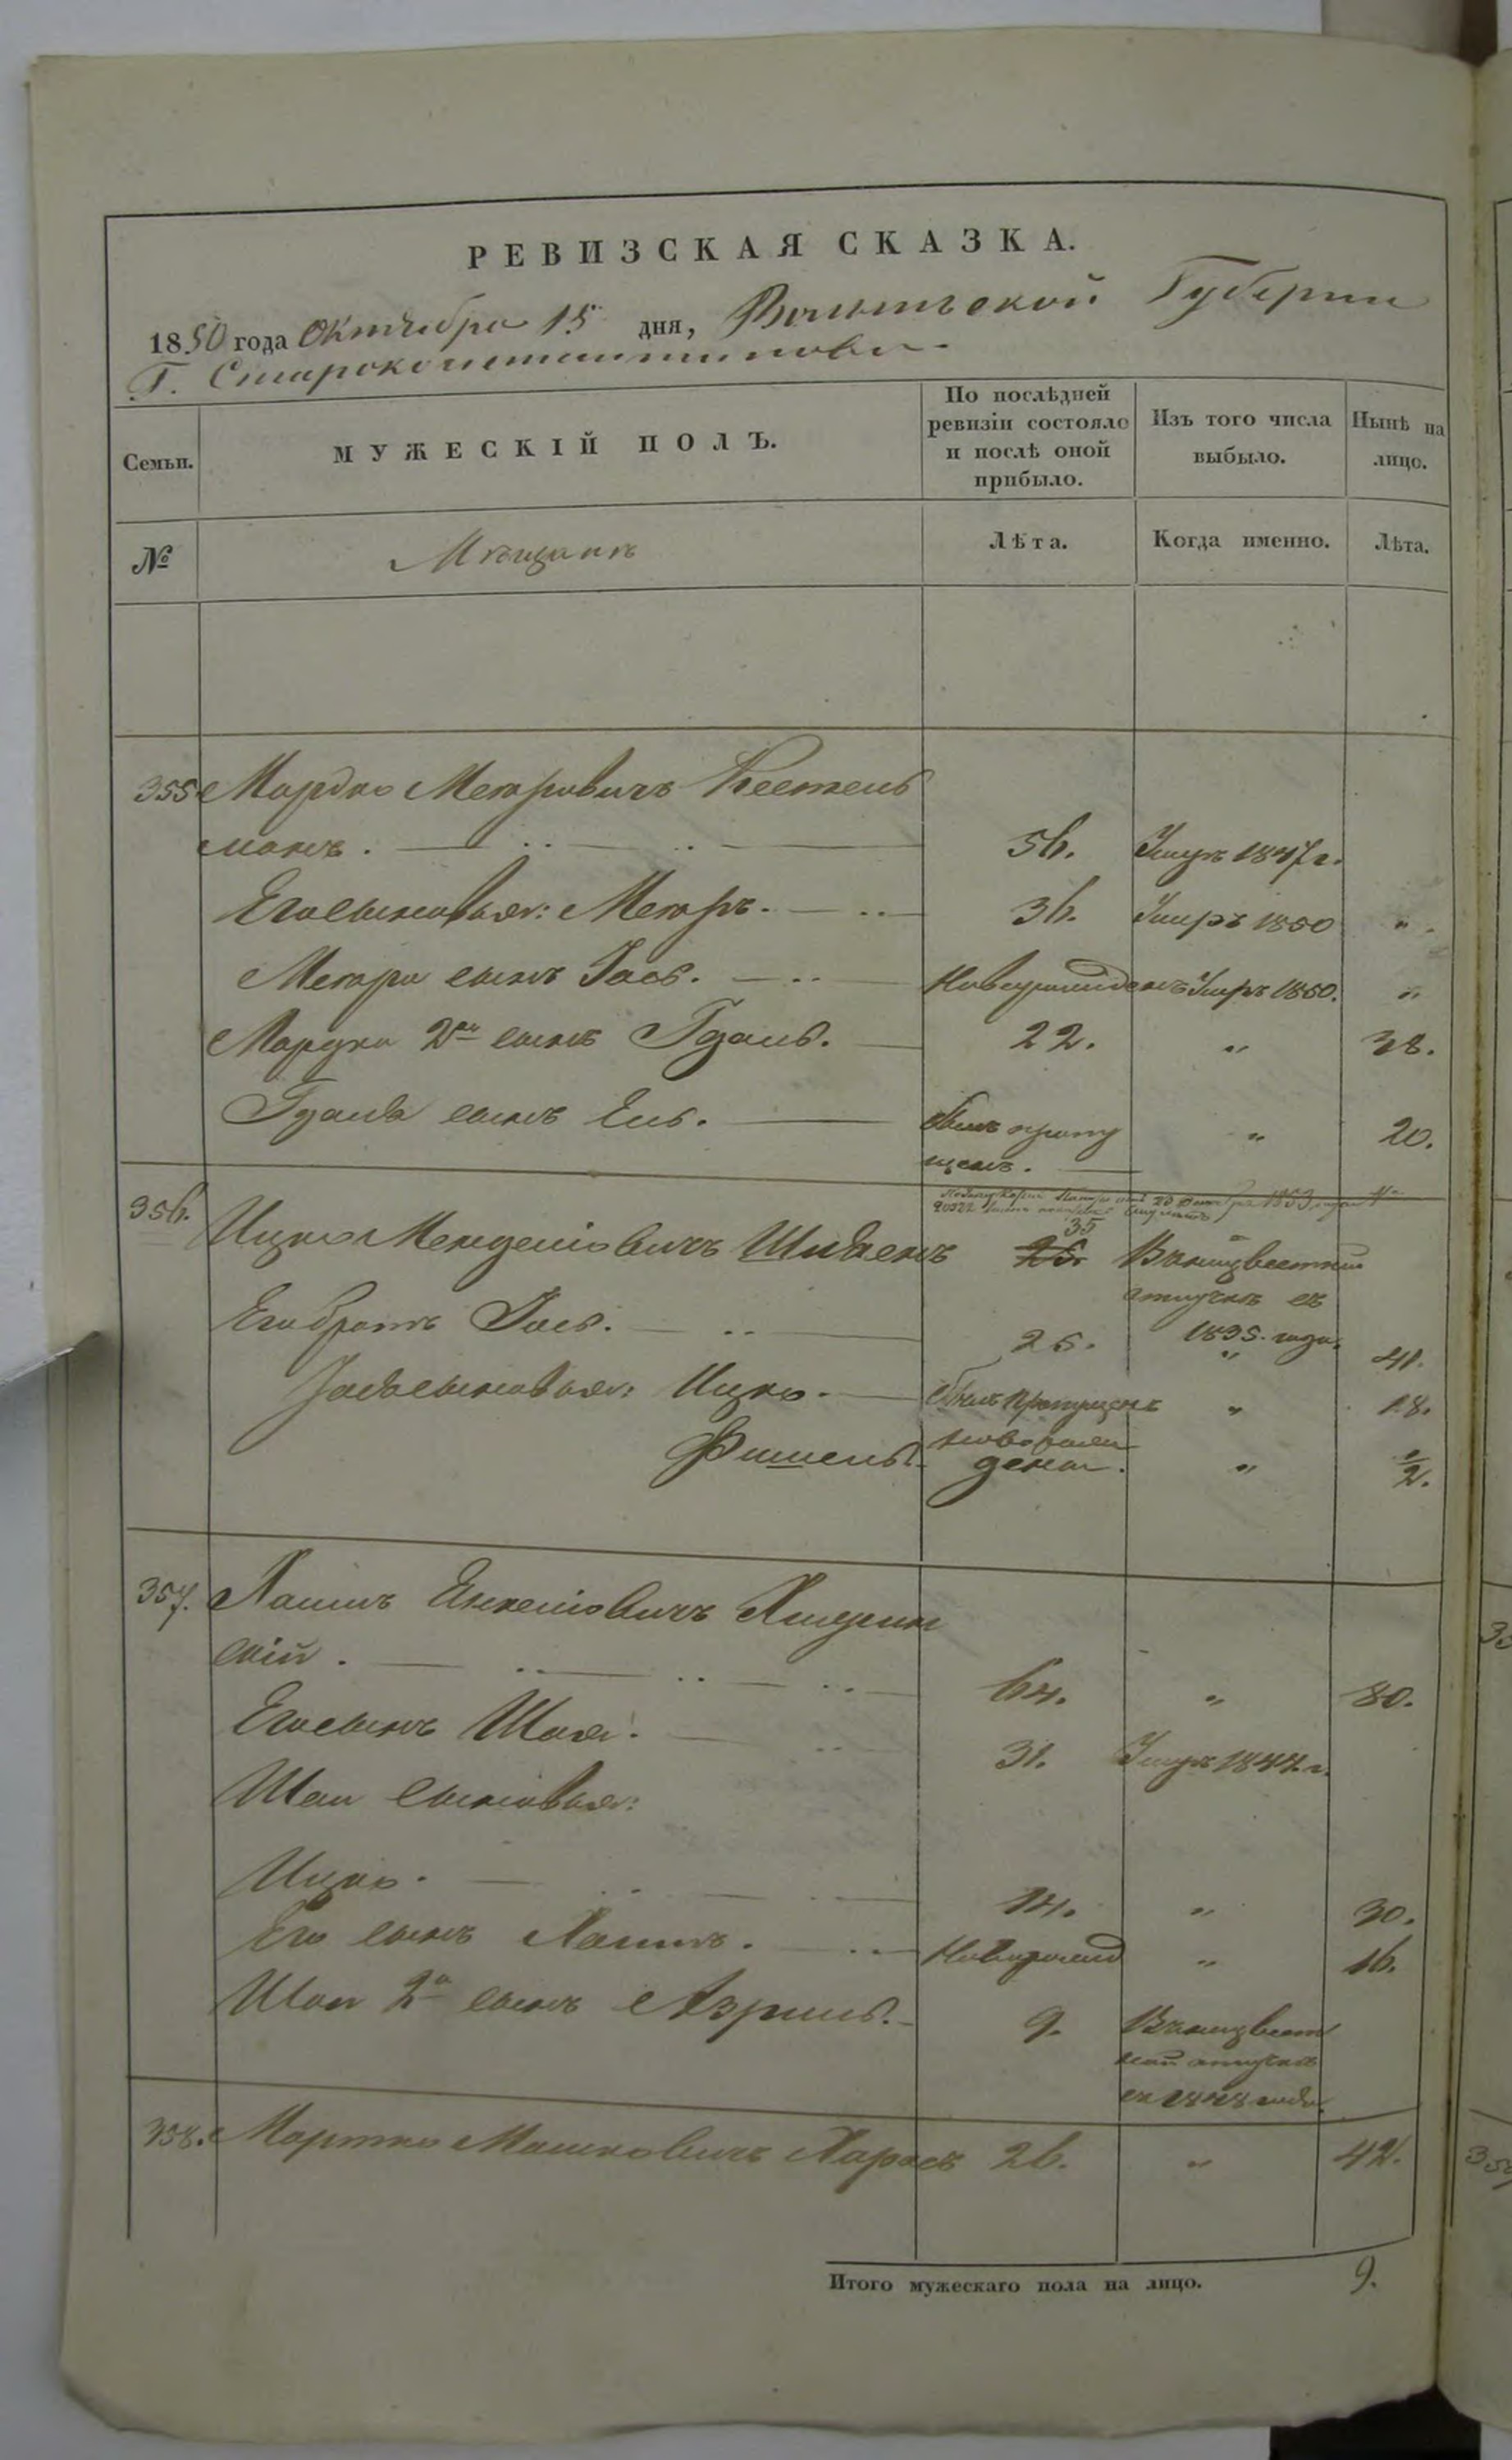 РЕВИЗСКАЯ СКАЗКА.
1850 года Октября 15 дня, Волынской Губернии
Г. Староконстантинова
Семьи. МУЖЕСКІЙ ПОЛЪ. По послѣдней ревизіи состояло и послѣ оной прибыло. Изъ того числа выбыло. Нынѣ на лицо.
№ Мѣщанъ Лѣта. Когда именно. Лѣта.
355. Мордко Мееровичъ Кестель
манъ. 56. Умеръ 1847 г.
Его сыновья: Мееръ. 36. Умеръ 1850 "
Меера сынъ Іось. Новорожденъ Умеръ 1850. "
Мордка 2й сынъ Гдаль. 22. " 38.
Гдаля сынъ Ель. былъ пропу
щенъ. " 20.
1853 года №
20522
356. Ицко Менделіовичъ Шидлекъ 35 25. В неизвестной
отлучке съ
1835 года.
Его братъ Іось. 25. " 41.
Іося сыновья: Ицко. Былъ пропущенъ " 18.
Фишель. новорож
денъ. " 1/2.
357. Хаимъ Енкеліовичъ
скій. 64. " 80.
Его сынъ Шая. 31. Умеръ 1844 г.
Шаи сыновья:
Ицко. 14. " 30.
Его сынъ Хаимъ. Новорожд " 16.
Шаи 2й сынъ Азриль. 9. В неизвест
ной отлучке
съ 1848 года.
358. Мортко Мошковичъ 26. " 42.
Итого мужескаго пола на лицо. 9.